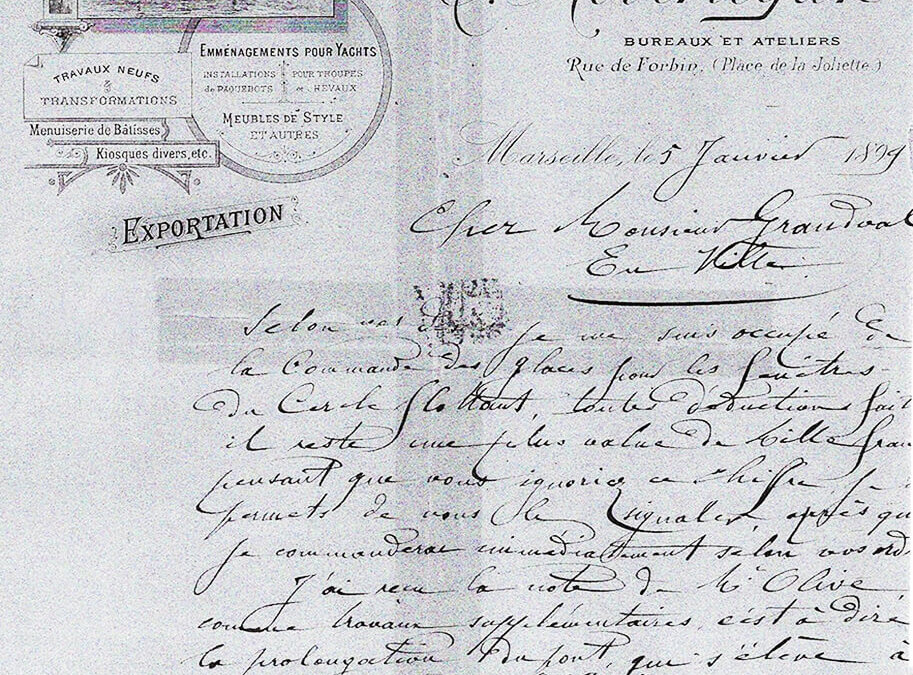 EMMÉNAGEMENTS POUR YACHTS
INSTALLATIONS POUR TROUPES
de PAQUEBOTS et CHEVAUX
MEUBLES DE STYLE
ET AUTRES
TRAVAUX NEUFS
&
TRANSFORMATIONS
Menuiserie de Bâtisses
Kiosques divers, etc.
EXPORTATION
BUREAUX ET ATELIERS
Rue de Forbin, (Place de la Joliette)
Marseille, le 5 Janvier 1899
Cher Monsieur Grandval
En Ville
Selon vos je me suis occupé de
la Commande des glaces pour les fenêtres
du Cercle flottant, toutes déductions fait
il reste une plus value de Mille fran
pensant que vous ignoriez ce chiffre je
permets de vous le signaler, après qu
je commanderai immédiatement selon vos ord
J'ai reçu la note de Mr Olive
comme travaux supplémentaires c'est à dire
la prolongation du pont, qui s'élève à